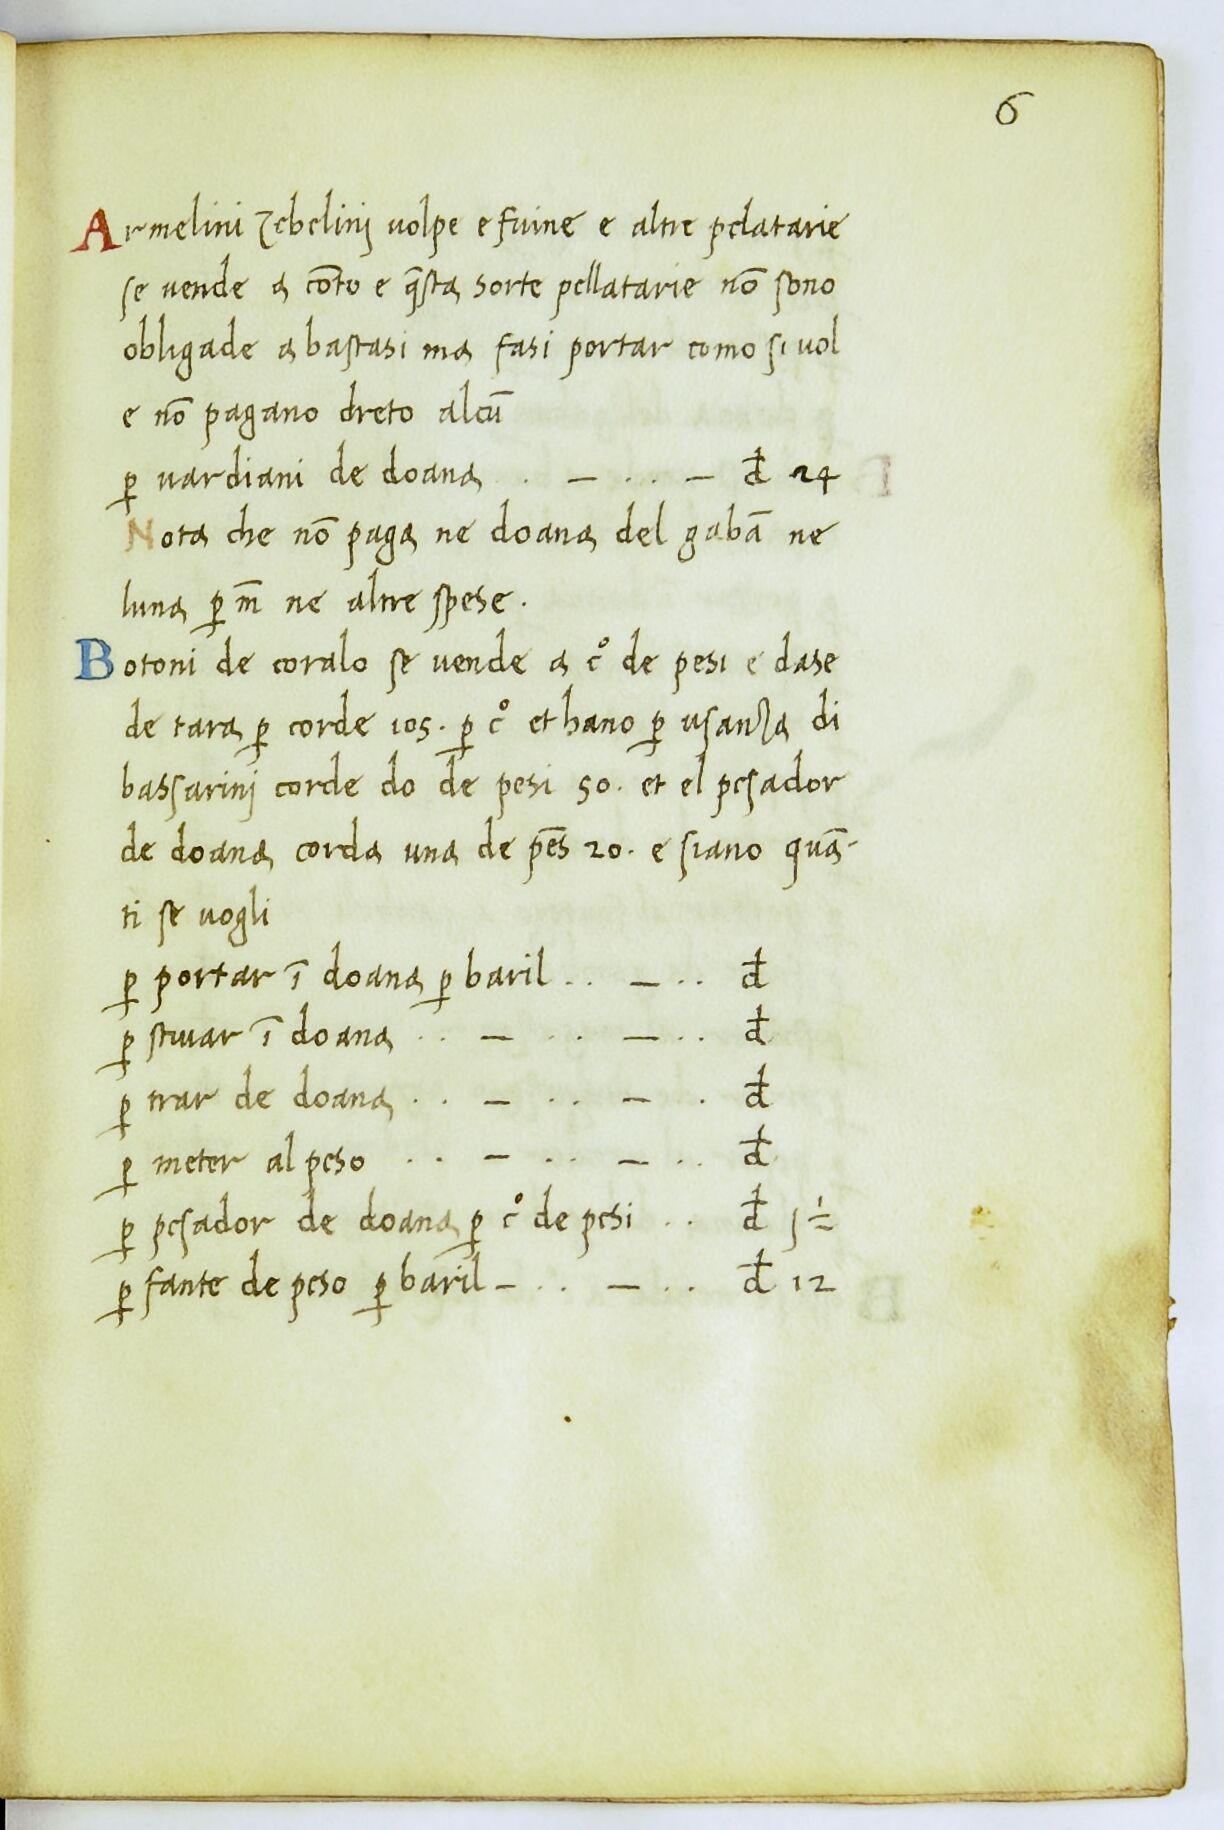 6
Armelini zebelinj uolpe e fuine e altre pelatarie
se uende a cōto e q̄sta sorte pellatarie nō sono
obligade a bastasi ma fasi portar como si uol
e nō pagano dreto alcū
ꝑ uardiani de doana . — . . — đ 24
Nota che nō paga ne doana del gabā ne
luna ꝑ m̄ ne altre spese .
Botoni de coralo se uende a cº de pesi e dase
de tara ꝑ corde 105. ꝑ cº et hano ꝑ usanza di
bassarinj corde do de pesi 50. et el pesador
de doana corda una de pēs 20. e siano quā-
ti se uogli
ꝑ portar ī doana ꝑ baril . . — . . đ
ꝑ stiuar ī doana . . — . . — . . đ
ꝑ trar de doana . . — . . — . đ
ꝑ meter al peso . . — . . — . . đ
ꝑ pesador de doana ꝑ cº de pesi . . đ ½
ꝑ fante de peso ꝑ baril — . . — . . đ 12